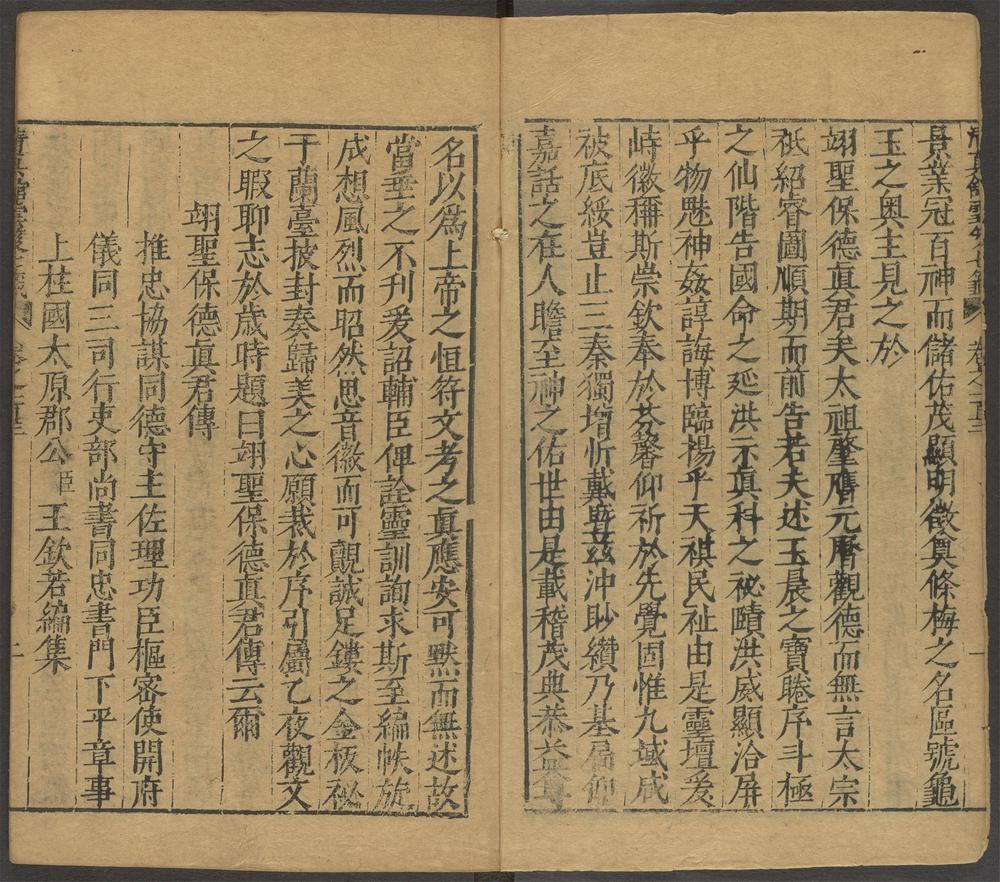 景業冠百神而儲佑茂顯明徵奠條梅之名區號龜
玉之奧主見之於
翊聖保德眞君矣太祖肇膺元曆觀德而無言太宗
祗紹睿圖順期而前告若夫述玉晨之寶睠序斗極
之仙階告國命之延洪示真科之祕賾洪威顯洽屏
乎物魅神姦諄誨博臨揚乎天祺民祉由是靈壇爰
峙徽稱斯崇欽奉於芬馨仰祈於先覺固惟九域咸
被底綏豈止三秦獨增忻戴肆茲沖眇纘乃基扃仰
嘉話之在人瞻至神之佑世由是載稽茂典恭益尊
名以爲上帝之恒符文考之眞應安可默而無述故
當垂之不刊爰詔輔臣俾詮靈訓詢求斯至編帙旋
成想風烈而昭然思音徽而可觀誠足鎖之金板祕
于蘭臺披封奏歸美之心願裁於序引屬乙夜觀文
之暇聊志於歲時題曰翊聖保德眞君傳云爾
翊聖保德眞君傳
推忠協謀同德守主佐理功臣樞密使開府
儀同三司行吏部尚書同忠書門下平章事
上柱國太原郡公臣王欽若編集